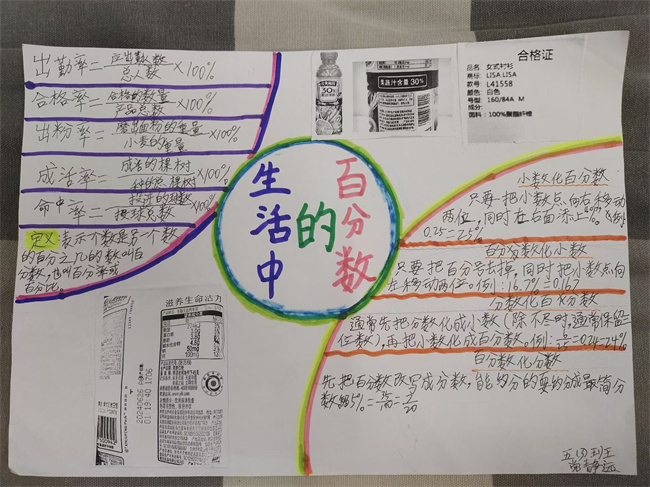 生活中的百分数
出勤率=应出勤人数/总人数×100%
合格率=合格的数量/产品总数×100%
出粉率=磨出面粉的重量/小麦的重量×100%
成活率=成活的棵树/种的总棵树×100%
命中率=投进的球数/投球总数×100%
定义 表示一个数是另一个数
的百分之几的数叫百
分数,也叫百分率或
百分比。
30%
果蔬汁含量 30%
合格证
品名: 女式衬衫
商标: LISA.LISA
款号: L41558
颜色: 白色
号型: 160/84A M
成分:
面料: 100%聚酯纤维
小数化百分数
只要把小数点向右移动
两位,同时在右面添上"%"。例:
0.25=25%
百分分数化小数
只要把百分号去掉,同时把小数点向
左移动两位。例:16.7%=0.167
分数化百分数
通常先把分数化成小数(除不尽时,通常保留
位数),再把小数化成百分数。例:=0.24=24%
百分数化分数
先把百分数改写成分数,能约分的要约成最简分
数
滋养生命活力
20240626
01 19:40 1706
五(3)班